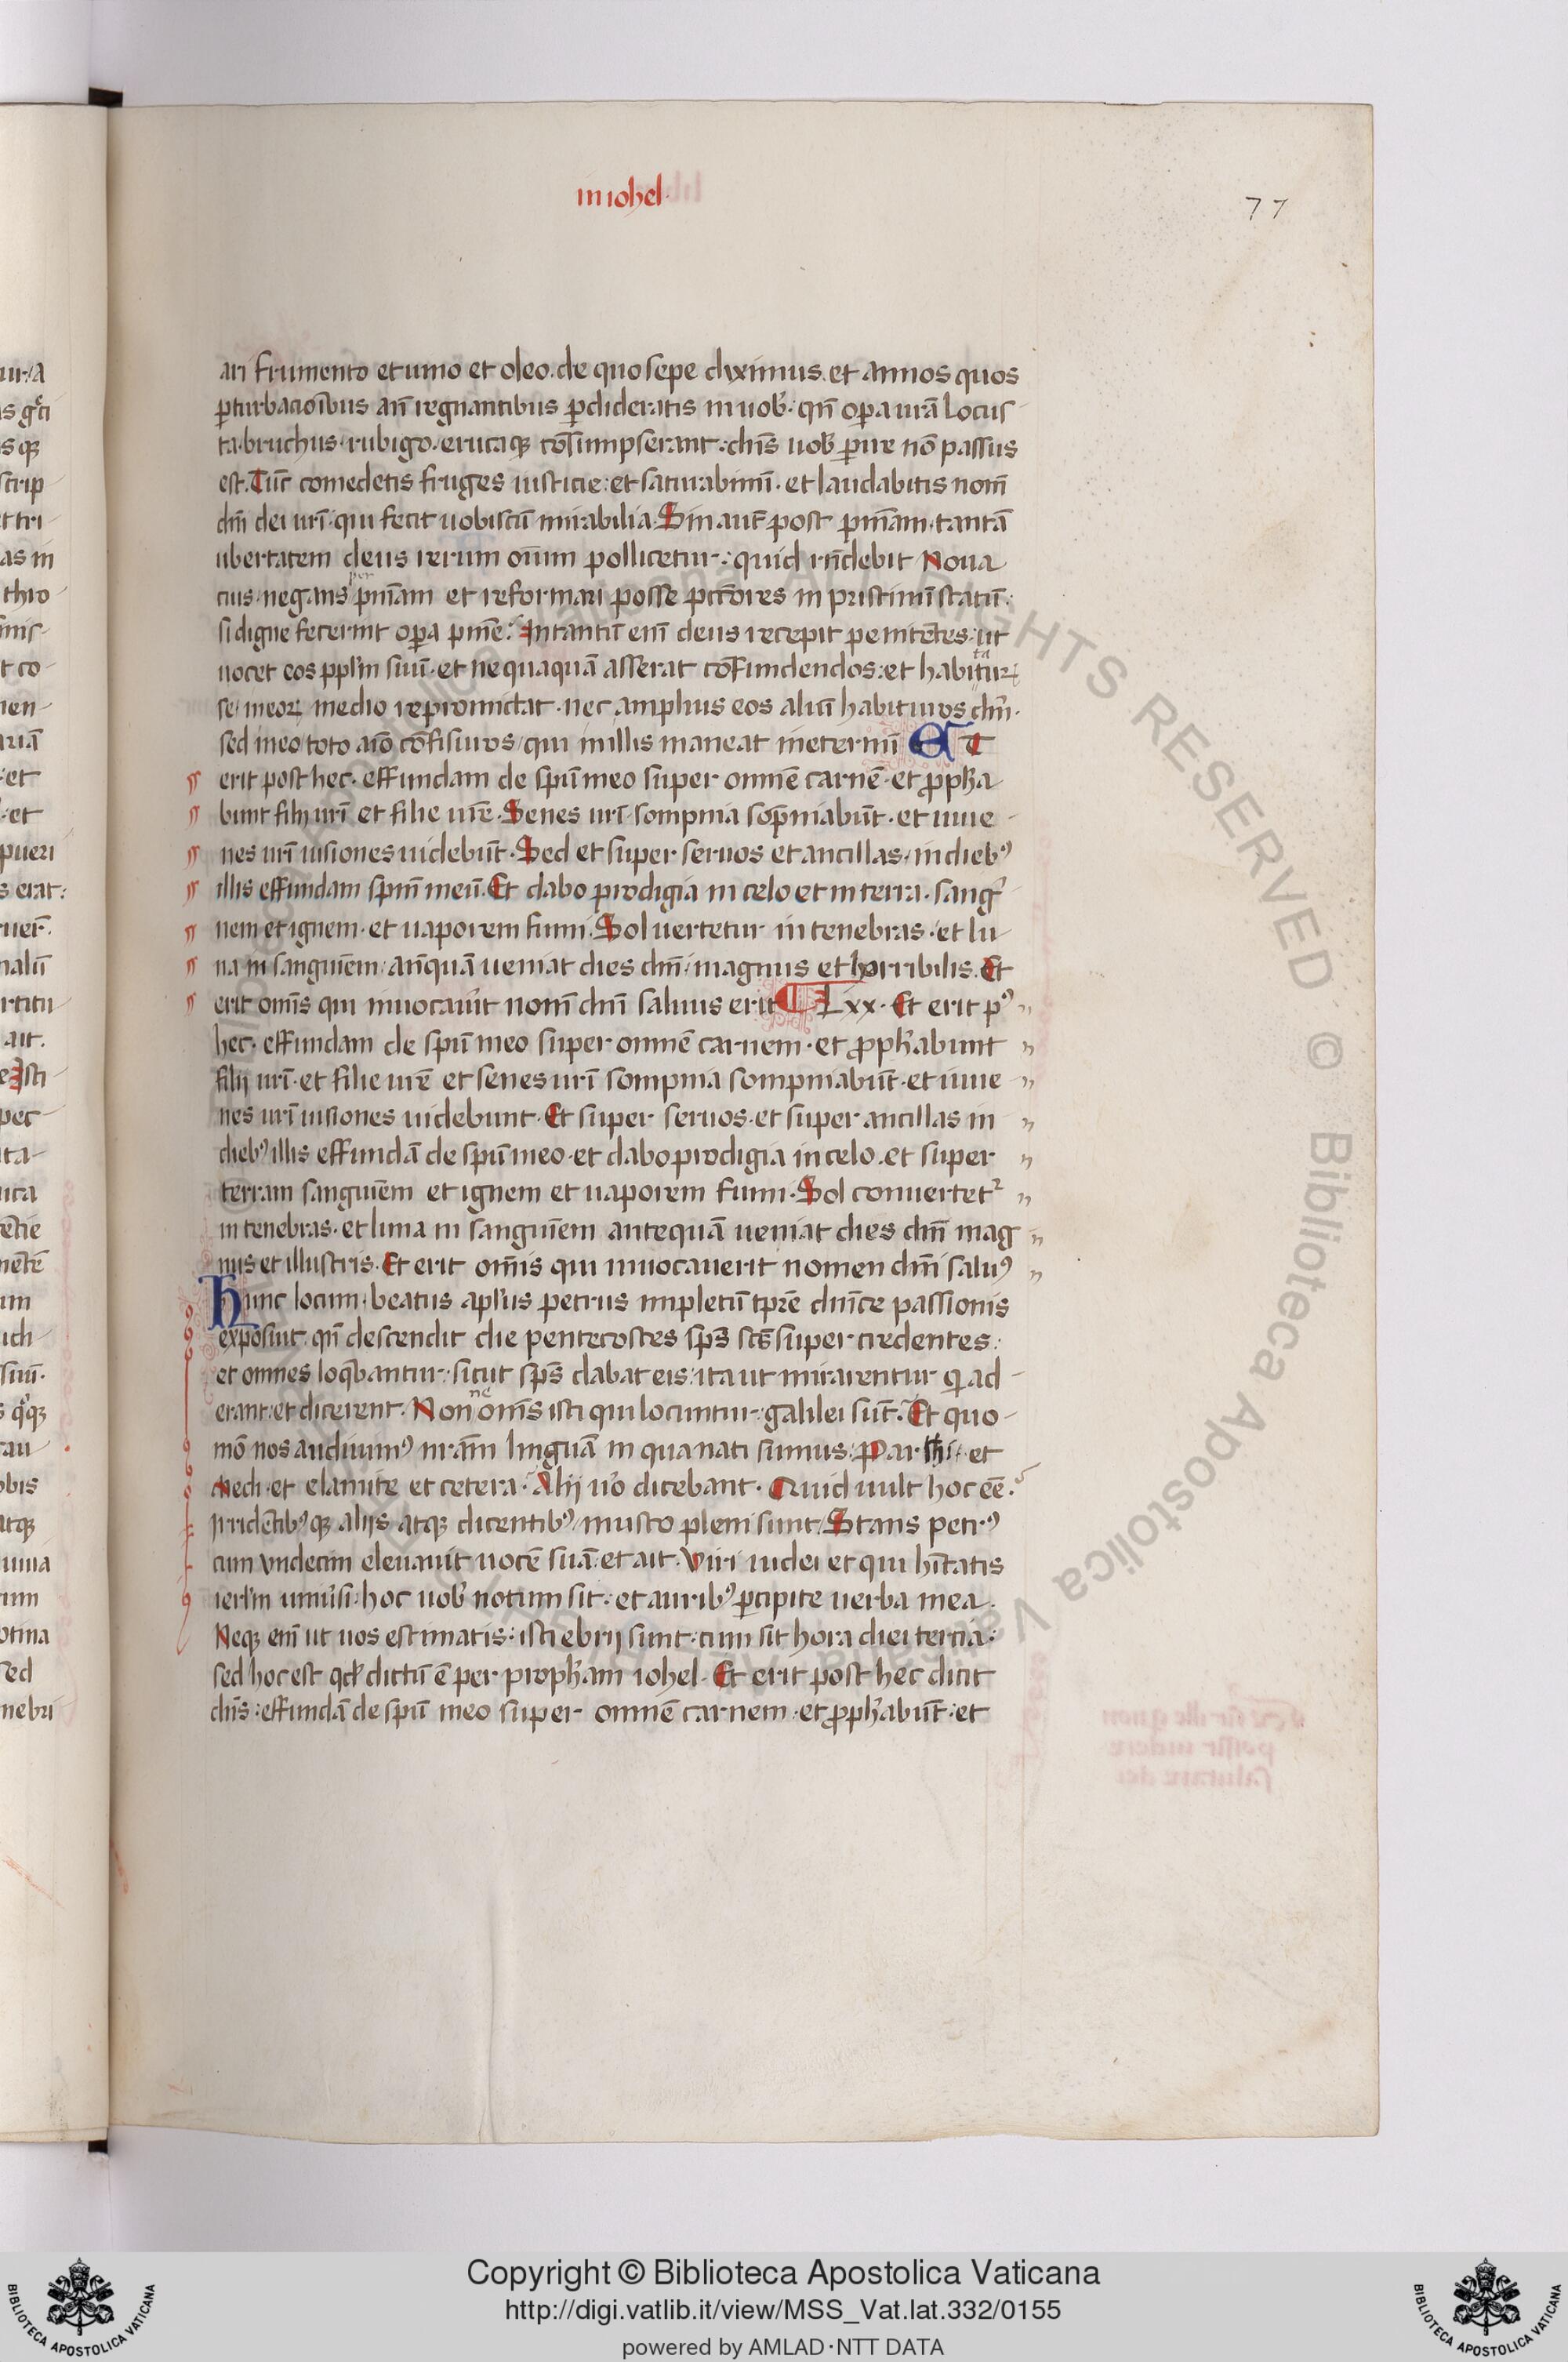 in iohel
77
ari frumento et uino et oleo. de quo sepe diximus. et annos quos
ꝑturbacioībus aīı regnantibus ꝑdideratis in uob̕. qn̄ oꝑa ur̄a Locuſ-
ta. bruchus. rubigo. erucaqꝫ cōsumpserant. dn̄s uob̕ ꝑire nō passus
est. Tūc comedetis fruges iusticie. et saturabimī. et laudabitis nom̄
dn̄i dei ur̄i. qui fecit uobiscū mirabilia. Sin aut̄ post pn̄iam. tantā
ubertatem deus rerum oīum pollicetur. quid rn̄debit Noua
cius. negans pn̄iam et reformari posse pctōres in pristinū statū.
si digne fecerint oꝑa pn̄ie. Intantū enī deus recepit penitētes. ut
uocet eos ppl̄m suū. et nequaquā asserat cōfundendos. et habitatuꝝ
se in eoꝝ medio repromictat. nec amplius eos aliū habituros dn̄m.
sed in eo toto aīo cōfisuros, qui in illis maneat in eternū ET
erit post hec. effundam de spū meo super omnē carnē. et ꝓph̄a
bunt filij ur̄i et filie ur̄e. Senes ur̄i sompnia sōpniabūt. et iuue-
nes ur̄i uisiones uidebūt. Sed et super seruos et ancillas, in dieb⁹
illis effundam spm̄ meū. Et dabo prodigia in celo et in terra. sang̕-
nem et ignem. et uaporem fumi. Sol uertetur in tenebras. et lu-
na in sanguīem, an̄quā ueniat dies dn̄i, magnus et horribilis. Et
erit omīs qui inuocau̕it nom̄ dn̄i saluus erit ¶ Lxx. Et erit p⁹
hec. effundam de spū meo super omnē carnem. et ꝓph̄abunt
filij ur̄i. et filie ur̄e et senes ur̄i sompnia sompniabūt. et iuue
nes ur̄i uisiones uidebunt. Et super seruos. et super ancillas in
dieb⁹ illis effundā de spū meo. et dabo prodigia in celo. et super
terram sanguīem et ignem et uaporem fumi. Sol conuertet᷑
in tenebras. et luna in sanguīem antequā ueniat dies dn̄i mag
nus et illustris. Et erit omīs qui inuocauerit nomen dn̄i salu⁹
Hunc locum. beatus apl̄us petrus impletū tꝑe dn̄ice passionis
exposuit. qn̄ descendit die pentecostes sps̄ scs̄ super credentes.
et omnes loqbantur. sicut sps̄ dabat eis. ita ut mirarentur q̇ ad-
erant. et dicerent. Nonne omīs isti qui locuntur. galilei sūt. Et quo-
mō nos audiuim⁹ nr̄am linguā in qua nati sumus. Parthi. et
Medi. et elamite et cetera. Alij u̕o dicebant. Quid uult hoc eē.
Irridētib⁹qꝫ alijs atqꝫ dicentib⁹, musto pleni sunt. Stans petr⁹
cum vndecim eleuauit uocē suā. et ait. Viri iudei et qui hītatis
ierl̄m uniu̕si. hoc uob̕ notum sit. et aurib⁹ ꝑcipite uerba mea.
Neqꝫ enī ut uos estimatis. isti ebrij sunt. cum sit hora diei tercia.
sed hoc est qd̄ dictū ē per proph̄am iohel. Et erit post hec dicit
dn̄s. effundā de spū meo super omnē carnem. et ꝓph̄abūt. et
Copyright © Biblioteca Apostolica Vaticana
http://digi.vatlib.it/view/MSS_Vat.lat.332/0155
powered by AMLAD·NTT DATA